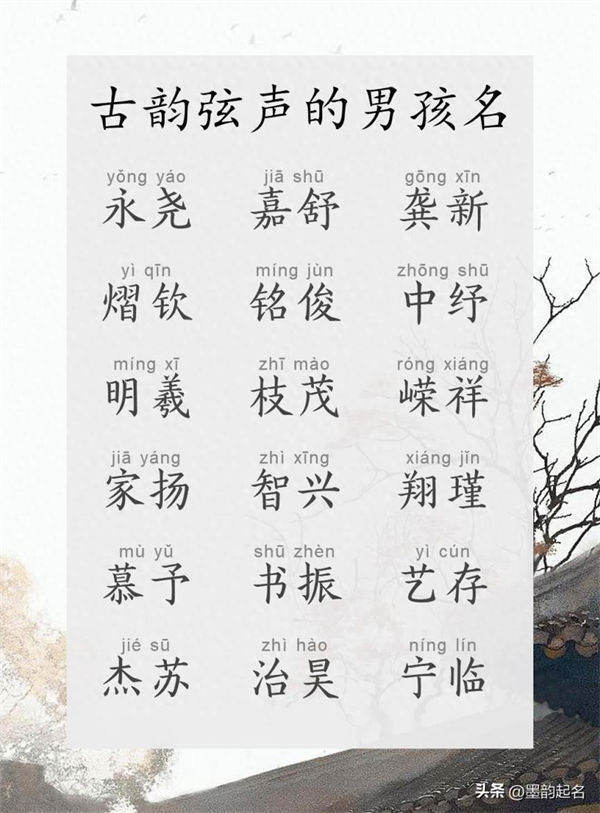 古韵弦声的男孩名
yǒng yáo jiā shū gōng xīn
永尧 嘉舒 龚新
yì qīn míng jùn zhōng shū
熠钦 铭俊 中纾
míng xī zhī mào róng xiáng
明羲 枝茂 嵘祥
jiā yáng zhì xīng xiáng jǐn
家扬 智兴 翔瑾
mù yǔ shū zhèn yì cún
慕予 书振 艺存
jié sū zhì hào níng lín
杰苏 治昊 宁临
头条 @墨韵起名